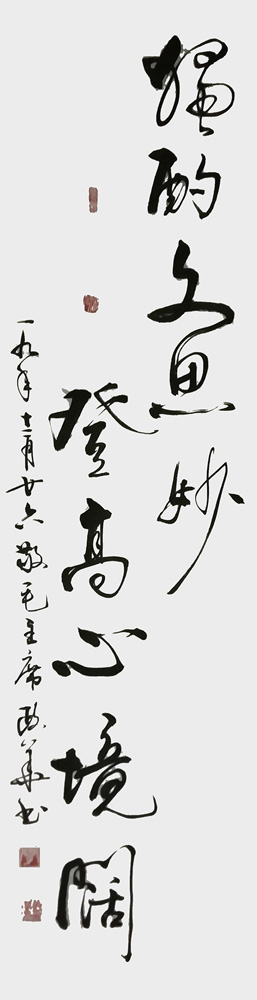 独酌文思妙
登高心境阔
一九年十二月廿六敬毛主席政华书